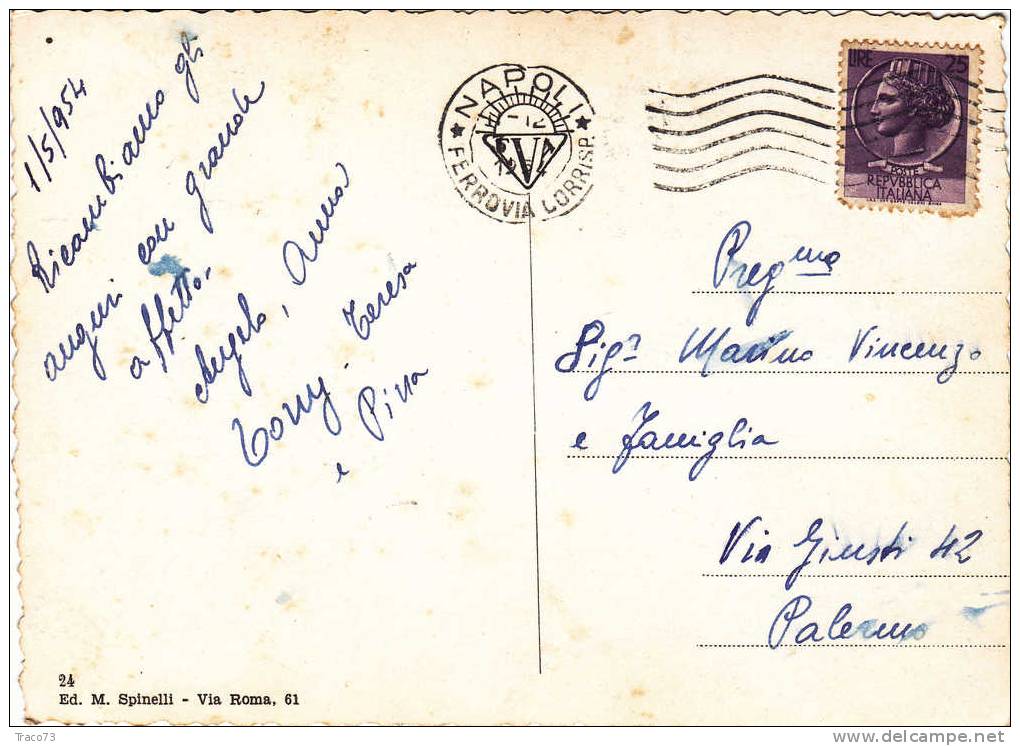 1/5/954
Ricambiamo gli
auguri con grande
affetto.
Angelo, Anna
Tony. Teresa
e Pina
NAPOLI
FERROVIA CORRISP.
LIRE 25
POSTE
REPVBBLICA
ITALIANA
Pregmo
Sigr Marino Vincenzo
e Famiglia
Via Giusti 42
Palermo
24
Ed. M. Spinelli - Via Roma, 61
Traco73
delcampe.net